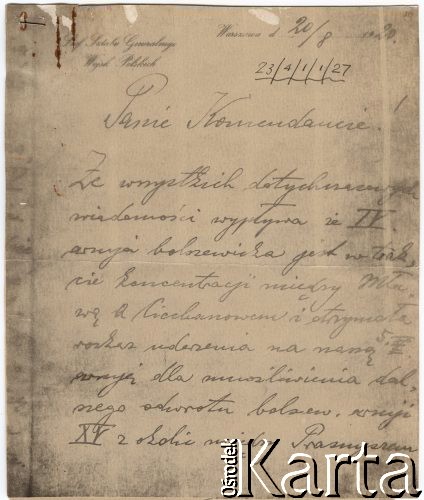 Szef Sztabu Generalnego
Wojsk Polskich
Warszawa d. 20/8 1920.
23/4/1/1/27
Panie Komendancie!
Ze wszystkich dotychczasowych
wiadomości wypływa że IV.
armja bolszewicka jest w trak-
cie koncentracji między Mła-
wą a Ciechanowem i otrzymała
rozkaz uderzenia na naszą 5.
armję dla umożliwienia dal-
szego odwrotu bolszew. armji
XV z okolic między Prasnyszem
Ośrodek
Karta